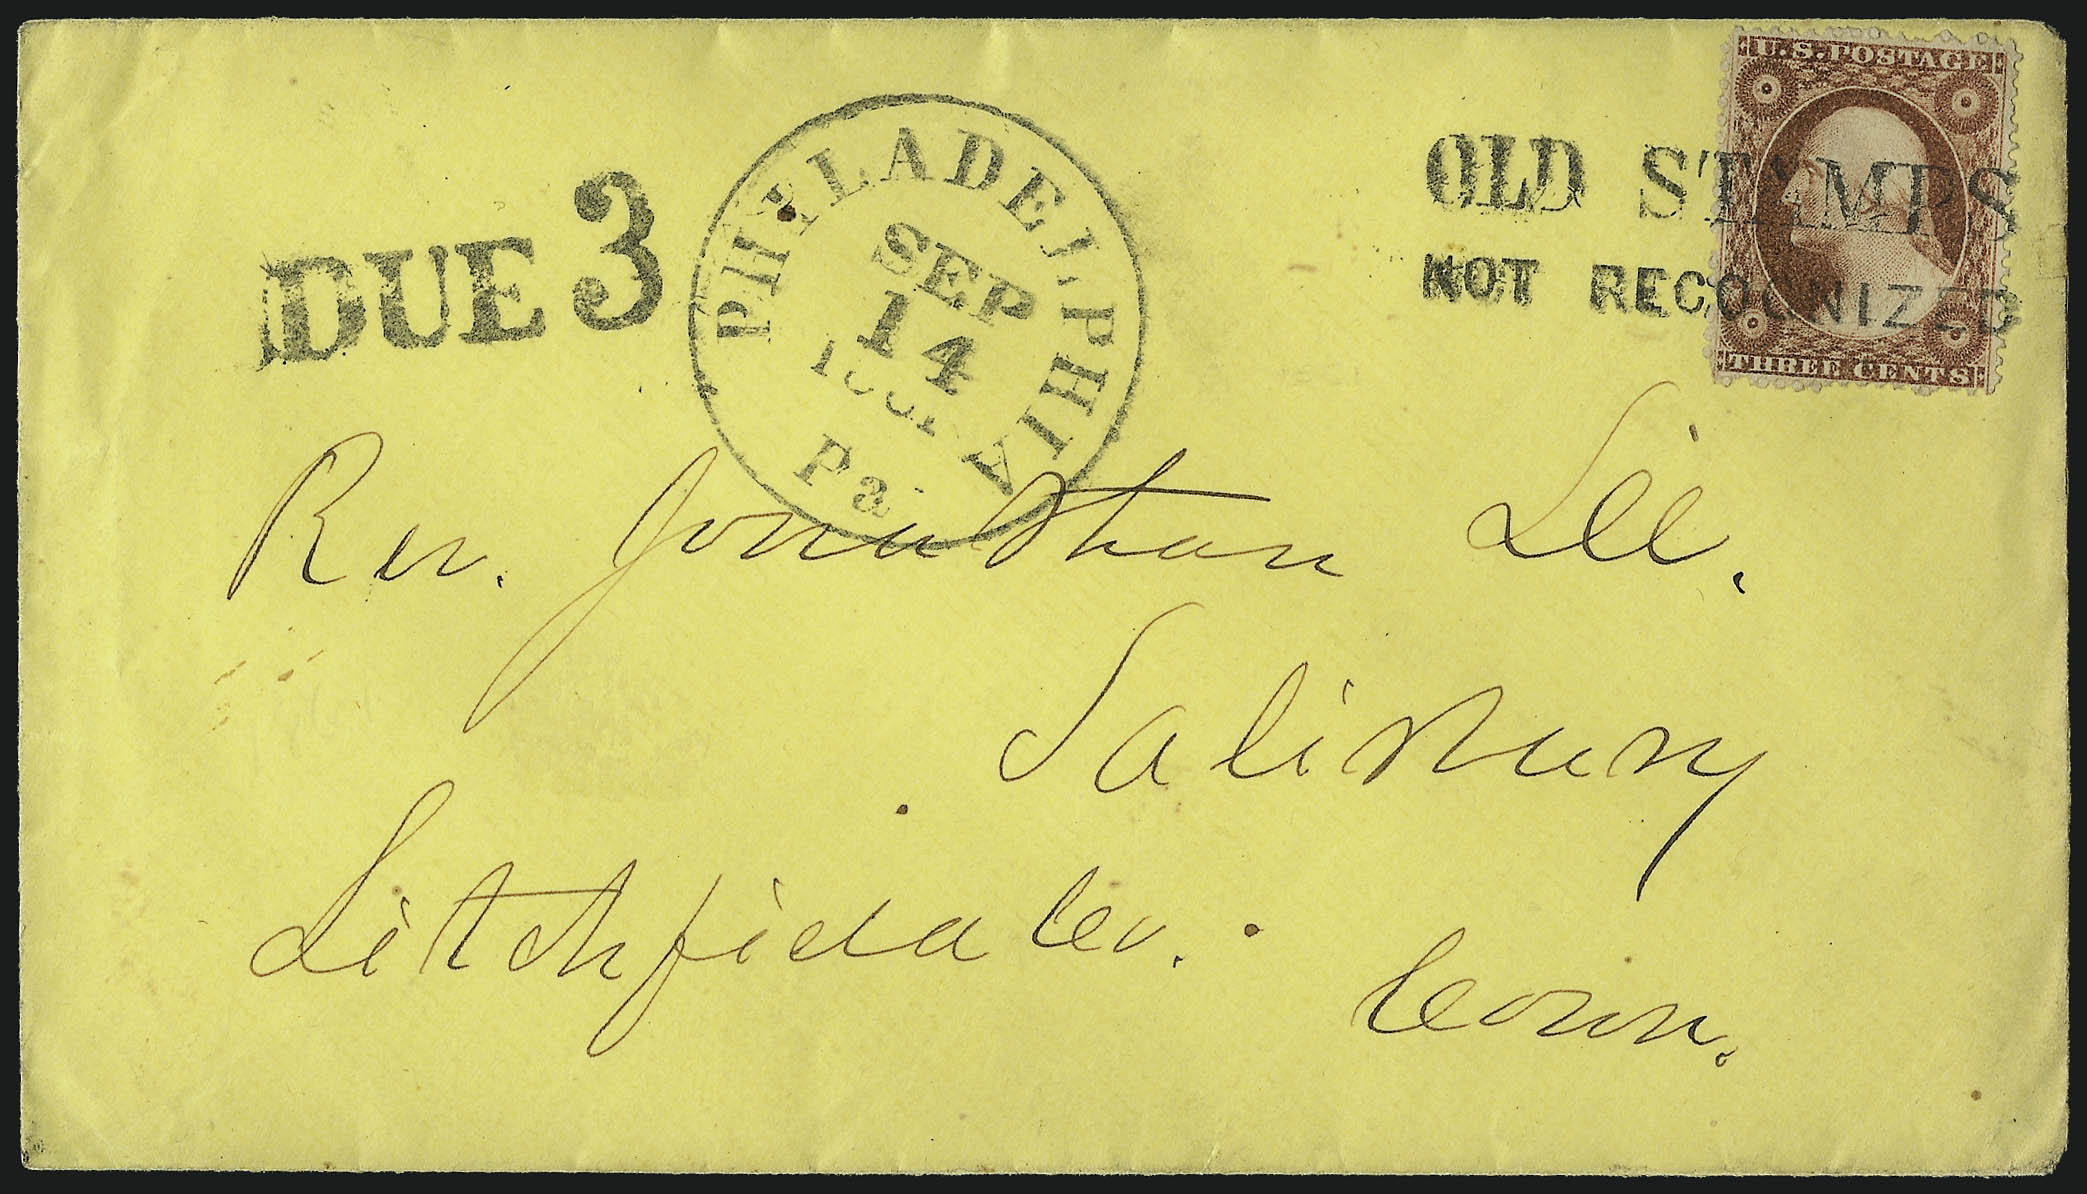 U.S. POSTAGE
THREE CENTS
OLD STAMPS
NOT RECOGNIZED
DUE 3
PHILADELPHIA
SEP
14
Pa.
Rev. Jonathan Lee.
Salisbury
Litchfield Co.
Conn.